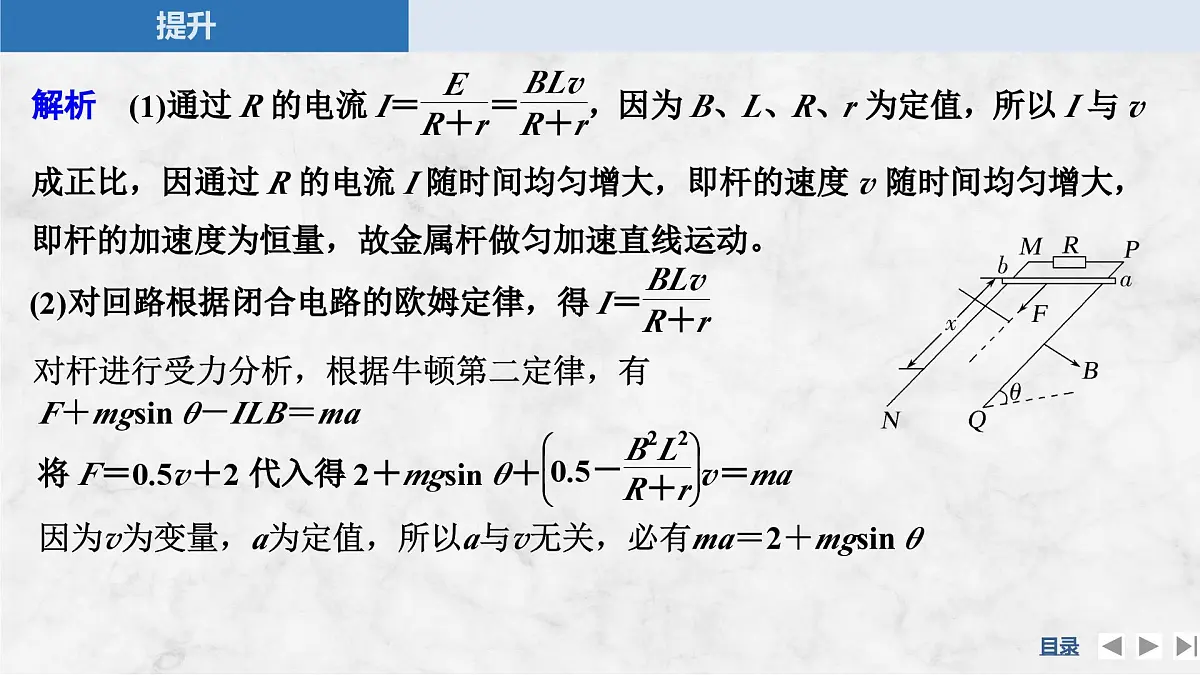 提升
解析 (1)通过 R 的电流 I=E/(R+r)=BLv/(R+r)，因为 B、L、R、r 为定值，所以 I 与 v
成正比，因通过 R 的电流 I 随时间均匀增大，即杆的速度 v 随时间均匀增大，
即杆的加速度为恒量，故金属杆做匀加速直线运动。
(2)对回路根据闭合电路的欧姆定律，得 I=BLv/(R+r)
对杆进行受力分析，根据牛顿第二定律，有
F+mgsin θ-ILB=ma
将 F=0.5v+2 代入得 2+mgsin θ+(0.5-B²L²/(R+r))v=ma
因为v为变量，a为定值，所以a与v无关，必有ma=2+mgsin θ
M R P
b a
x F
B
N Q θ
目录